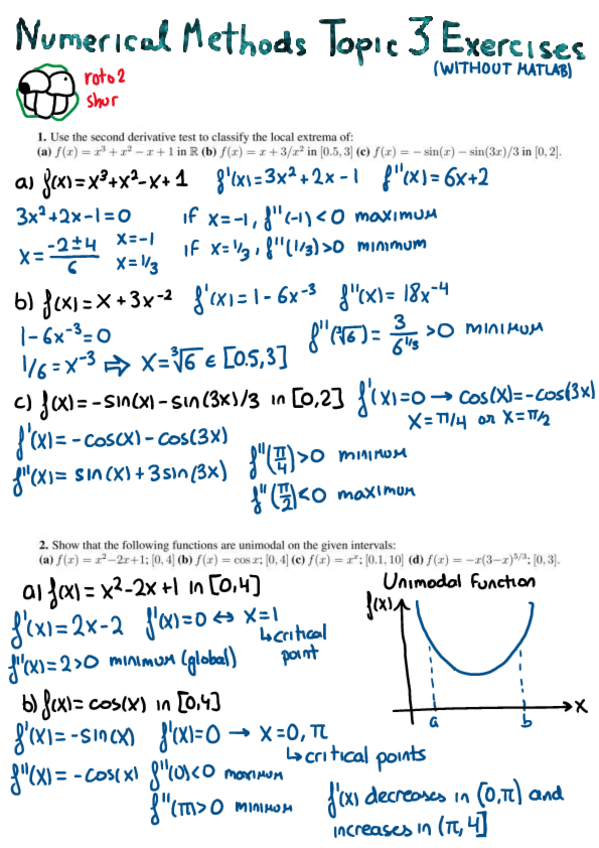 Numerical Methods Topic 3 Exercises
(WITHOUT MATLAB)
roto2
shur
1. Use the second derivative test to classify the local extrema of:
(a) f(x) = x³ + x² − x + 1 in ℝ (b) f(x) = x + 3/x² in [0.5, 3] (c) f(x) = − sin(x) − sin(3x)/3 in [0, 2].
a) f(x) = x³+x²-x+1 f'(x) = 3x²+2x-1 f''(x) = 6x+2
3x²+2x-1=0 if x=-1, f''(-1)<0 maximum
x = (-2±4)/6 x=-1 x=1/3 if x=1/3, f''(1/3)>0 minimum
b) f(x) = x+3x⁻² f'(x) = 1-6x⁻³ f''(x) = 18x⁻⁴
1-6x⁻³=0 f''(∛6) = 3/6^(1/3) >0 minimum
1/6 = x⁻³ ⇒ x=∛6 ∈ [0.5,3]
c) f(x) = -sin(x) - sin(3x)/3 in [0,2] f'(x)=0 → cos(x)=-cos(3x)
x=π/4 or x=π/2
f'(x) = -cos(x)-cos(3x)
f''(x) = sin(x)+3sin(3x) f''(π/4)>0 minimum
f''(π/2)<0 maximum
2. Show that the following functions are unimodal on the given intervals:
(a) f(x) = x²−2x+1; [0, 4] (b) f(x) = cos x; [0, 4] (c) f(x) = xˣ; [0.1, 10] (d) f(x) = −x(3−x)^(5/3); [0, 3].
a) f(x) = x²-2x+1 in [0,4]
f'(x)=2x-2 f'(x)=0 ↔ x=1
↳critical point
f''(x)=2>0 minimum (global)
Unimodal function
f(x)
x
a b
b) f(x)=cos(x) in [0,4]
f'(x)=-sin(x) f'(x)=0 → x=0, π
↳critical points
f''(x) = -cos(x) f''(0)<0 maximum
f''(π)>0 minimum
f'(x) decreases in (0,π) and
increases in (π,4]